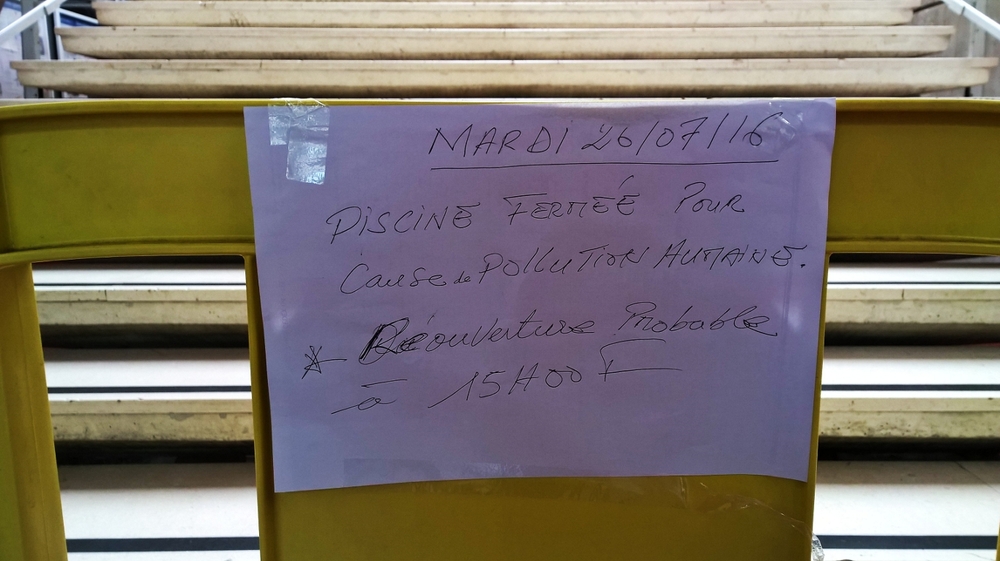 MARDI 26/07/16
PISCINE FERMÉE POUR
Cause de POLLUTION HUMAINE.
* Réouverture Probable
à 15H00